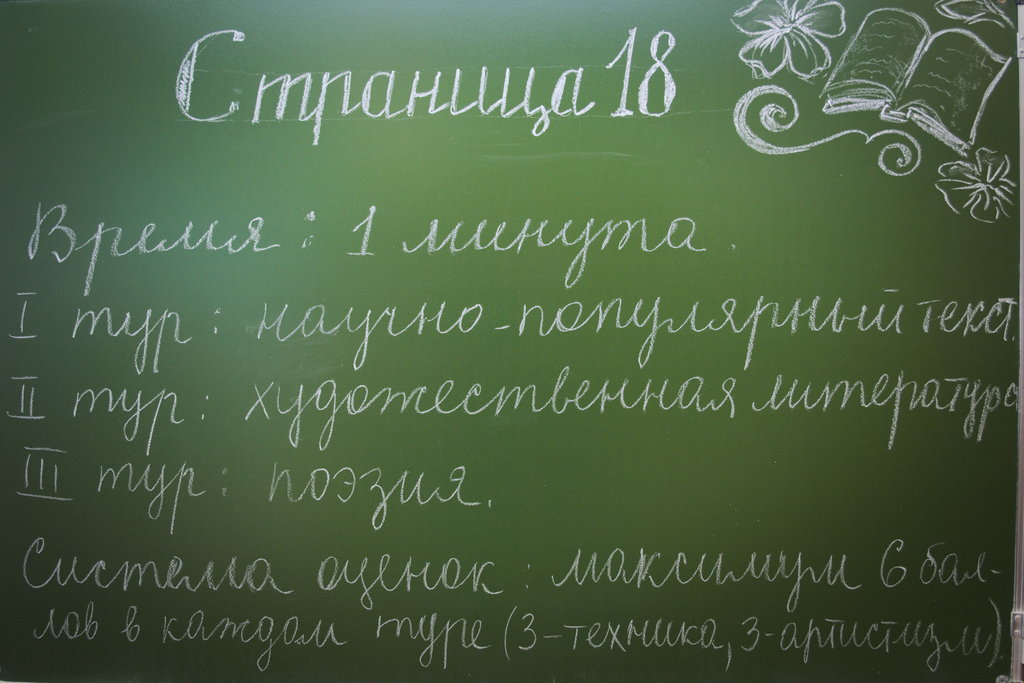 Страница 18
Время: 1 минута.
I тур: научно-популярный текст.
II тур: художественная литература
III тур: поэзия.
Система оценок: максимум 6 бал-
лов в каждом туре (3-техника, 3-артистизм)